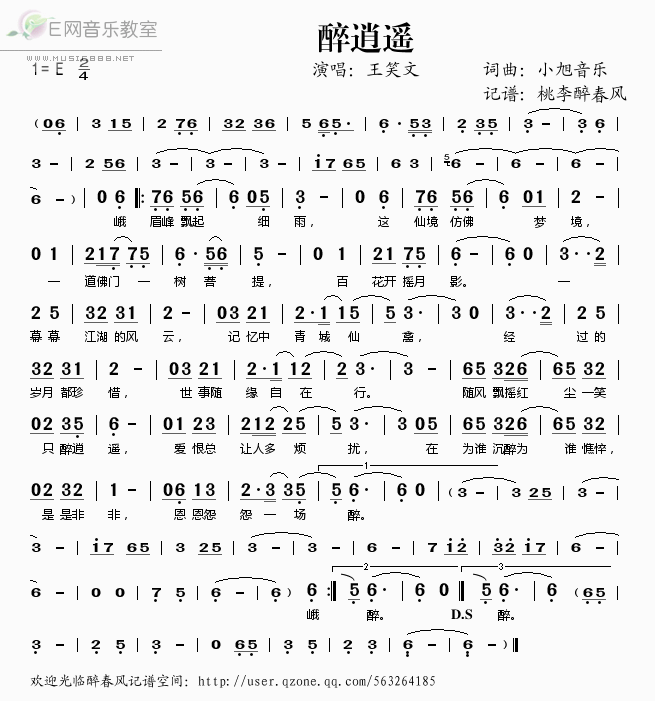 E网音乐教室
WWW.MUSIC888.NET
醉逍遥
1=E 2/4
演唱：王笑文 词曲：小旭音乐
记谱：桃李醉春风
(06 | 3 15 | 2 76 | 32 36 | 5 65· | 6·53 | 2 35 | 3 - | 3 6 |
3 - | 2 56 | 3 - | 3 - | 17 65 | 6 3 | 5 6 - | 6 - | 6 - |
6 - ) | 0 6 |: 76 56 | 6 05 | 3 - | 0 6 | 76 56 | 6 01 | 2 - |
峨 眉峰 飘起 细 雨， 这 仙境 仿佛 梦 境，
0 1 | 217 75 | 6·56 | 5 - | 0 1 | 21 75 | 6 - | 60 | 3··2 |
一 道佛门 一 树 菩 提， 百 花开 摇月 影。 一
2 5 | 32 31 | 2 - | 03 21 | 2·1 15 | 5 3· | 3 0 | 3··2 | 2 5 |
幕 幕 江湖 的风 云， 记 忆中 青 城 仙 龛， 经 过的
32 31 | 2 - | 03 21 | 2·1 12 | 2 3· | 3 - | 65 326 | 65 32 |
岁月 都珍 惜， 世 事随 缘 自 在 行。 随风 飘摇红 尘 一笑
02 35 | 6 - | 01 23 | 212 25 | 5 3· | 3 05 | 65 326 | 65 32 |
只 醉逍 遥， 爱 恨总 让人多 烦 扰， 在 为谁 沉醉为 谁 憔悴，
1
02 32 | 1 - | 06 13 | 2·3 35 | 5 6· | 6 0 | (3 - | 3 25 | 3 - |
是 是非 非， 恩 恩怨 怨 一 场 醉。
3 - | 17 65 | 3 25 | 3 - | 3 - | 6 - | 7 12 | 32 17 | 6 - |
2 3
6 - | 0 0 | 7 5 | 6 - | 6 - ) | 6 :| 5 6· | 6 0 || 5 6· | 6 (65 |
峨 醉。 D.S 醉。
3 - | 2 5 | 3 - | 0 65 | 3 5 | 3 - | 6 - | 6 - )||
欢迎光临醉春风记谱空间：http://user.qzone.qq.com/563264185